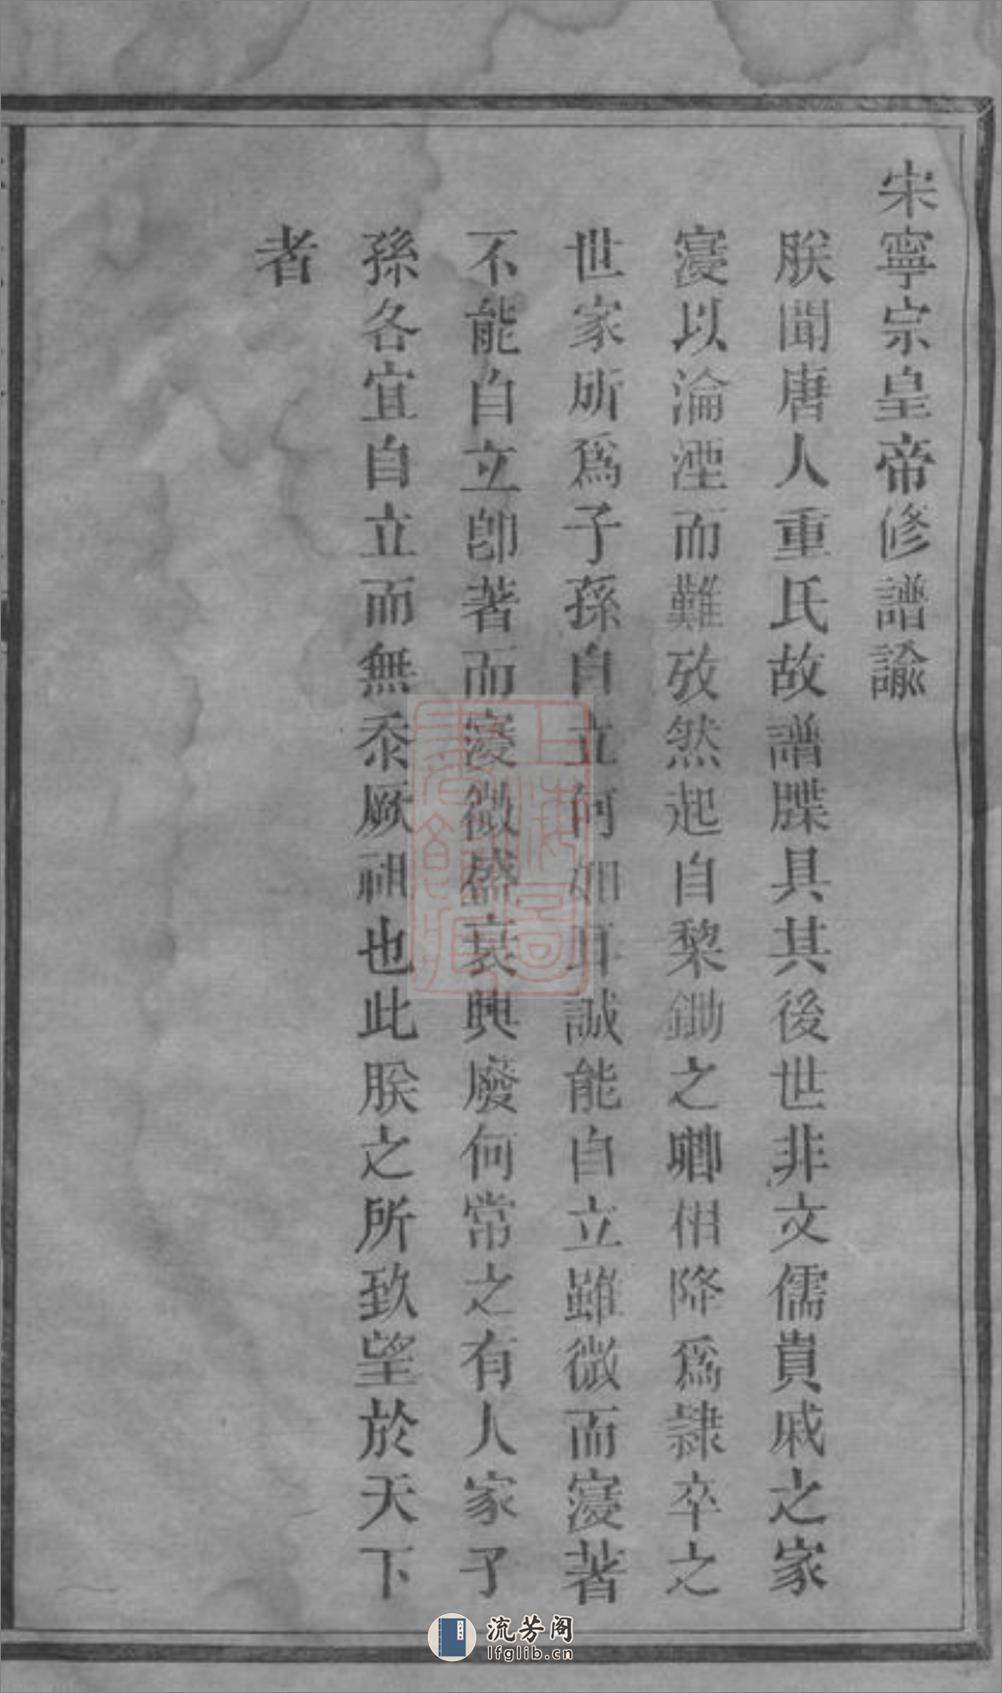 宋寧宗皇帝修譜諭
朕聞唐人重氏故譜牒具其後世非文儒貴戚之家
寖以淪湮而難攷然起自犂鋤之卿相降爲隸卒之
世家所爲子孫自立何如耳誠能自立雖微而寖著
不能自立卽著而寖微盛衰興廢何常之有人家子
孫各宜自立而無忝厥祖也此朕之所致望於天下
者
上海圖書館藏
流芳阁
lfglib.cn